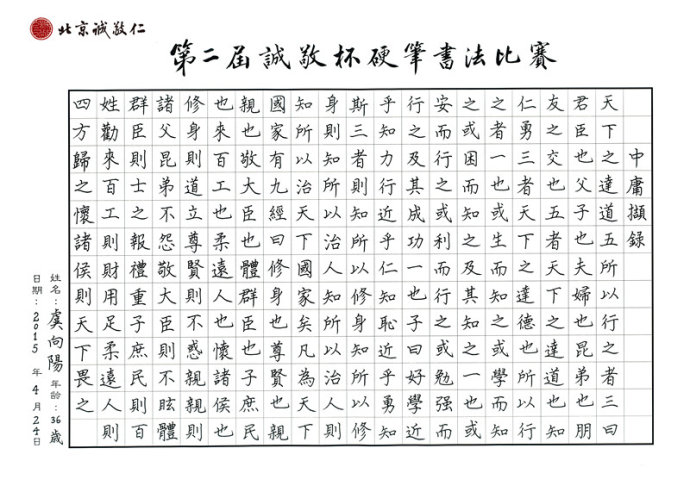 北京誠敬仁
第二屆誠敬杯硬筆書法比賽
中庸擷錄
天下之達道五所以行之者三曰
君臣也父子也夫婦也昆弟也朋
友之交也五者天下之達道也知
仁勇三者天下之達德也所以行
之者一也或生而知之或學而知
之或困而知之及其知之一也或
安而行之或利而行之或勉强而
行之及其成功一也子曰好學近
乎知力行近乎仁知恥近乎勇知
斯三者則知所以修身知所以修
身則知所以治人知所以治人則
知所以治天下國家矣凡為天下
國家有九經曰修身也尊賢也親
親也敬大臣也體群臣也子庶民
也來百工也柔遠人也懷諸侯也
修身則道立尊賢則不惑親親則
諸父昆弟不怨敬大臣則不眩體
群臣則士之報禮重子庶民則百
姓勸來百工則財用足柔遠人則
四方歸之懷諸侯則天下畏之
姓名：虞向陽 年齡：36歲
日期：2015年4月24日